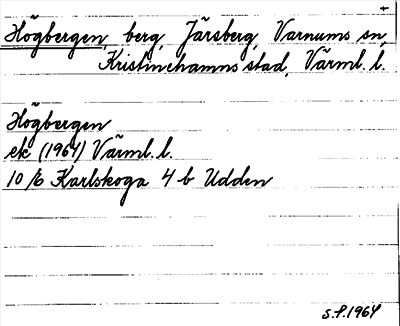 Högbergen, berg, Järsberg, Varnums sn,
Kristinehamns stad, Värml. l.
Högbergen
ek (1964) Värml. l.
10 /E Karlskoga 4 b Udden
S.P. 1964